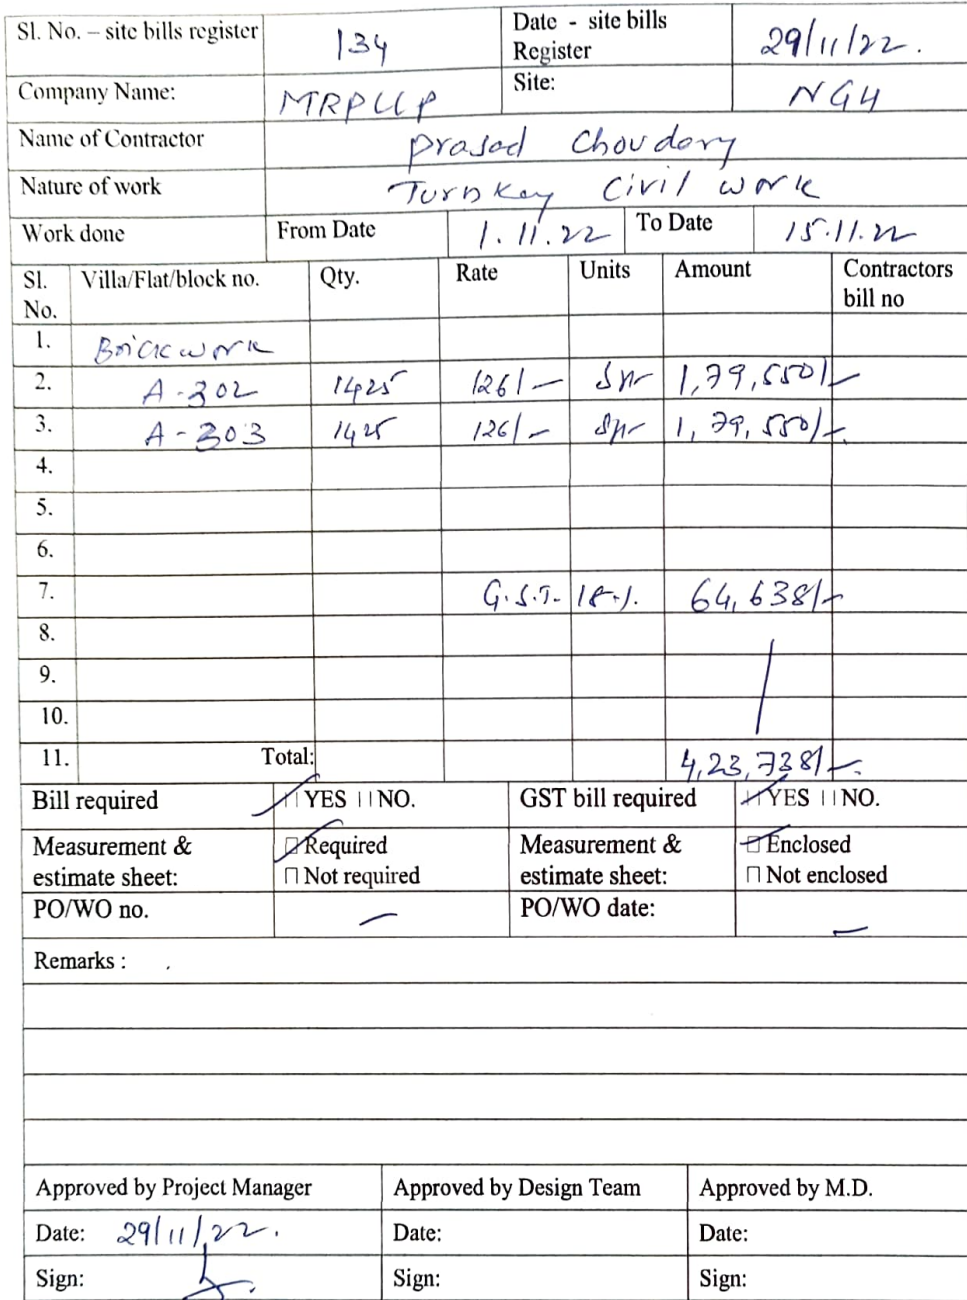 Sl. No. – site bills register 134 Date - site bills Register 29/11/22.
Company Name: MRPLLP Site: NGH
Name of Contractor Prasad Choudary
Nature of work Turnkey Civil work
Work done From Date 1.11.22 To Date 15.11.22
Sl. No. Villa/Flat/block no. Qty. Rate Units Amount Contractors bill no
1. Brickwork
2. A-302 1425 126/- Sft 1,79,550/-
3. A-303 1425 126/- Sft 1,79,550/-
4.
5.
6.
7. G.S.T. 18% 64,638/-
8.
9.
10.
11. Total: 4,23,738/-
Bill required YES NO. GST bill required YES NO.
Measurement & estimate sheet: Required Measurement & estimate sheet: Enclosed
Not required Not enclosed
PO/WO no. — PO/WO date: —
Remarks :
Approved by Project Manager Approved by Design Team Approved by M.D.
Date: 29/11/22. Date: Date:
Sign: Sign: Sign: